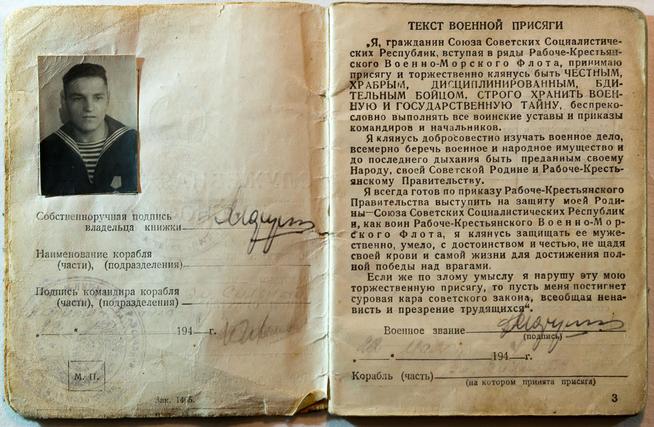 Собственноручная подпись
владельца книжки
Наименование корабля
(части), (подразделения)
Подпись командира корабля
(части), (подразделения)
194 г.
М. П.
Зак. 1465.
ТЕКСТ ВОЕННОЙ ПРИСЯГИ
„Я, гражданин Союза Советских Социалистиче-
ских Республик, вступая в ряды Рабоче-Крестьян-
ского Военно-Морского Флота, принимаю
присягу и торжественно клянусь быть ЧЕСТНЫМ,
ХРАБРЫМ, ДИСЦИПЛИНИРОВАННЫМ, БДИ-
ТЕЛЬНЫМ БОЙЦОМ, СТРОГО ХРАНИТЬ ВОЕН-
НУЮ И ГОСУДАРСТВЕННУЮ ТАЙНУ, беспреко-
словно выполнять все воинские уставы и приказы
командиров и начальников.
Я клянусь добросовестно изучать военное дело,
всемерно беречь военное и народное имущество и
до последнего дыхания быть преданным своему
Народу, своей Советской Родине и Рабоче-Кресть-
янскому Правительству.
Я всегда готов по приказу Рабоче-Крестьянского
Правительства выступить на защиту моей Роди-
ны—Союза Советских Социалистических Республик
и, как воин Рабоче-Крестьянского Военно-Мор-
ского Флота, я клянусь защищать ее муже-
ственно, умело, с достоинством и честью, не щадя
своей крови и самой жизни для достижения пол-
ной победы над врагами.
Если же по злому умыслу я нарушу эту мою
торжественную присягу, то пусть меня постигнет
суровая кара советского закона, всеобщая нена-
висть и презрение трудящихся“.
Военное звание
(подпись)
194 г.
Корабль (часть)
(на котором принята присяга)
3